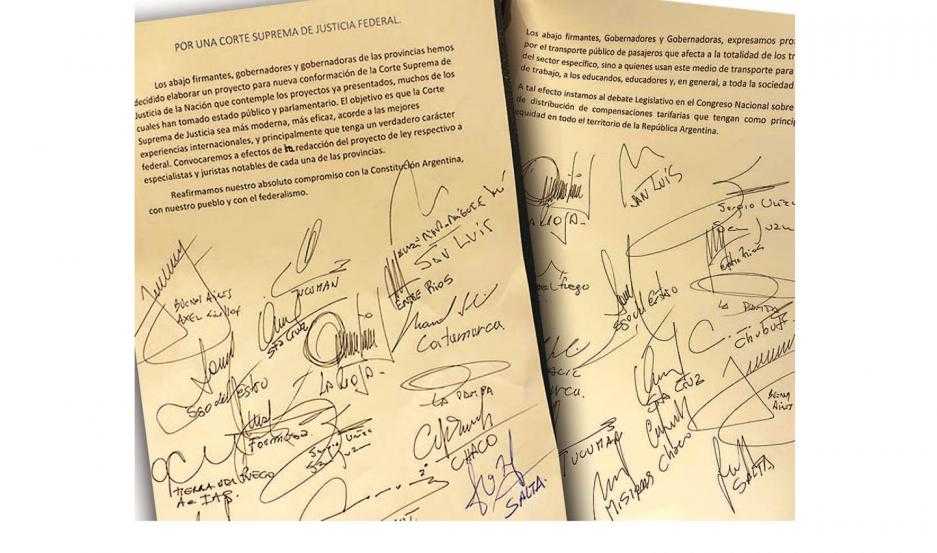 POR UNA CORTE SUPREMA DE JUSTICIA FEDERAL.
Los abajo firmantes, gobernadores y gobernadoras de las provincias hemos
decidido elaborar un proyecto para nueva conformación de la Corte Suprema de
Justicia de la Nación que contemple los proyectos ya presentados, muchos de los
cuales han tomado estado público y parlamentario. El objetivo es que la Corte
Suprema de Justicia sea más moderna, más eficaz, acorde a las mejores
experiencias internacionales, y principalmente que tenga un verdadero carácter
federal. Convocaremos a efectos de la redacción del proyecto de ley respectivo a
especialistas y juristas notables de cada una de las provincias.
Reafirmamos nuestro absoluto compromiso con la Constitución Argentina,
con nuestro pueblo y con el federalismo.
SAN LUIS
TUCUMAN
ENTRE RIOS
BUENOS AIRES
AXEL Kicillof
STA CRUZ
Catamarca
LA RIOJA-
SGO del Estro
LA PAMPA
Formosa
CHACO
TIERRA DEL FUEGO
A e IAS
SALTA.
Los abajo firmantes, Gobernadores y Gobernadoras, expresamos
por el transporte público de pasajeros que afecta a la totalidad de los
del sector específico, sino a quienes usan este medio de transporte para
de trabajo, a los educandos, educadores y, en general, a toda la sociedad
A tal efecto instamos al debate Legislativo en el Congreso Nacional sobre
de distribución de compensaciones tarifarias que tengan como
equidad en todo el territorio de la República Argentina.
SAN LUIS
LA RIOJA-
Sergio Uñac
San Juan
Entre Ríos
del Fuego
SGO del Estro
LA PAMPA
Chubut
STA CRUZ
BUENOS
AIRES
TUCUMAN
Chaco
Misiones
SALTA